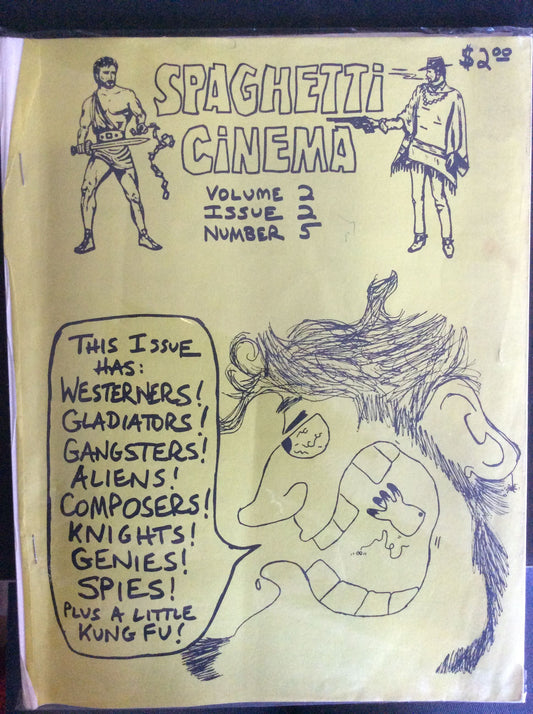 $2.00
SPAGHETTI
CINEMA
VOLUME 2
ISSUE 2
NUMBER 5
THIS ISSUE
HAS:
WESTERNERS!
GLADIATORS!
GANGSTERS!
ALIENS!
COMPOSERS!
KNIGHTS!
GENIES!
SPIES!
PLUS A LITTLE
KUNG FU!